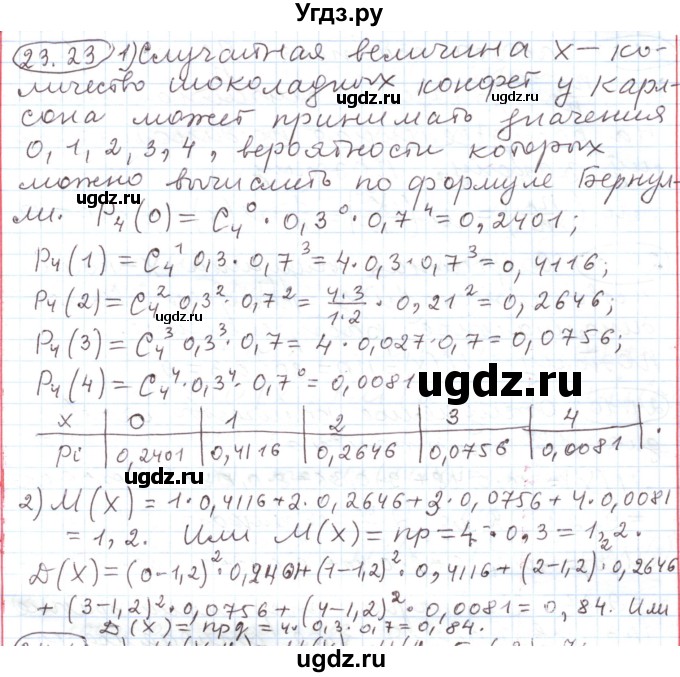 Угдз.ру
23.23 1) Случайная величина X – ко-
личество шоколадных конфет у Карл-
сона может принимать значения
0, 1, 2, 3, 4, вероятности которых
можно вычислить по формуле Бернул-
ли. P₄(0) = C₄⁰ · 0,3⁰ · 0,7⁴ = 0,2401;
P₄(1) = C₄¹ 0,3 · 0,7³ = 4 · 0,3 · 0,7³ = 0,4116;
P₄(2) = C₄² 0,3² · 0,7² = 4·3/1·2 · 0,21² = 0,2646;
P₄(3) = C₄³ 0,3³ · 0,7 = 4 · 0,027 · 0,7 = 0,0756;
P₄(4) = C₄⁴ · 0,3⁴ · 0,7⁰ = 0,0081
X 0 1 2 3 4
Pi 0,2401 0,4116 0,2646 0,0756 0,0081 .
2) M(X) = 1 · 0,4116 + 2 · 0,2646 + 3 · 0,0756 + 4 · 0,0081
= 1,2. Или M(X) = np = 4 · 0,3 = 1,2.
D(X) = (0–1,2)² · 0,2401 + (1–1,2)² · 0,4116 + (2–1,2)² · 0,2646
+ (3–1,2)² · 0,0756 + (4–1,2)² · 0,0081 = 0,84. Или
D(X) = npq = 4 · 0,3 · 0,7 = 0,84.
ugdz.ru
ugdz.ru
ugdz.ru
ugdz.ru
ugdz.ru
ugdz.ru
ugdz.ru
ugdz.ru
ugdz.ru